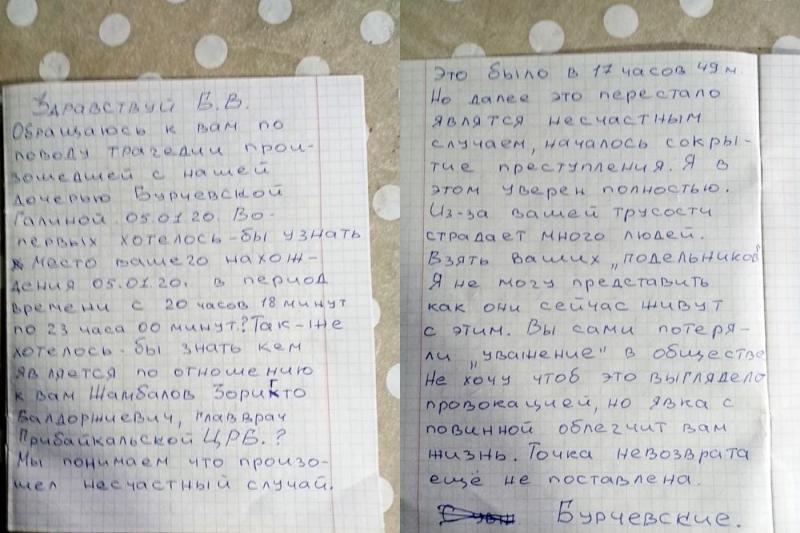 Здравствуй Б.В.
Обращаюсь к вам по
поводу трагедии прои-
зошедшей с нашей
дочерью Бурчевской
Галиной 05.01.20. Во-
первых хотелось-бы узнать
место вашего нахож-
дения 05.01.20. в период
времени с 20 часов 18 минут
по 23 часа 00 минут? Так-же
хотелось-бы знать кем
является по отношению
к вам Шамбалов Зоригто
Валдоржиевич, главврач
Прибайкальской ЦРБ.?
Мы понимаем что произо-
шел несчастный случай.
Это было в 17 часов 49 м.
Но далее это перестало
являтся несчастным
случаем, началось сокры-
тие преступления. Я в
этом уверен полностью.
Из-за вашей трусости
страдает много людей.
Взять ваших „подельников"
Я не могу представить
как они сейчас живут
с этим. Вы сами потеря-
ли „уважение" в обществе
Не хочу чтоб это выглядело
провокацией, но явка с
повинной облегчит вам
жизнь. Точка невозврата
ещё не поставлена.
Бурчевские.